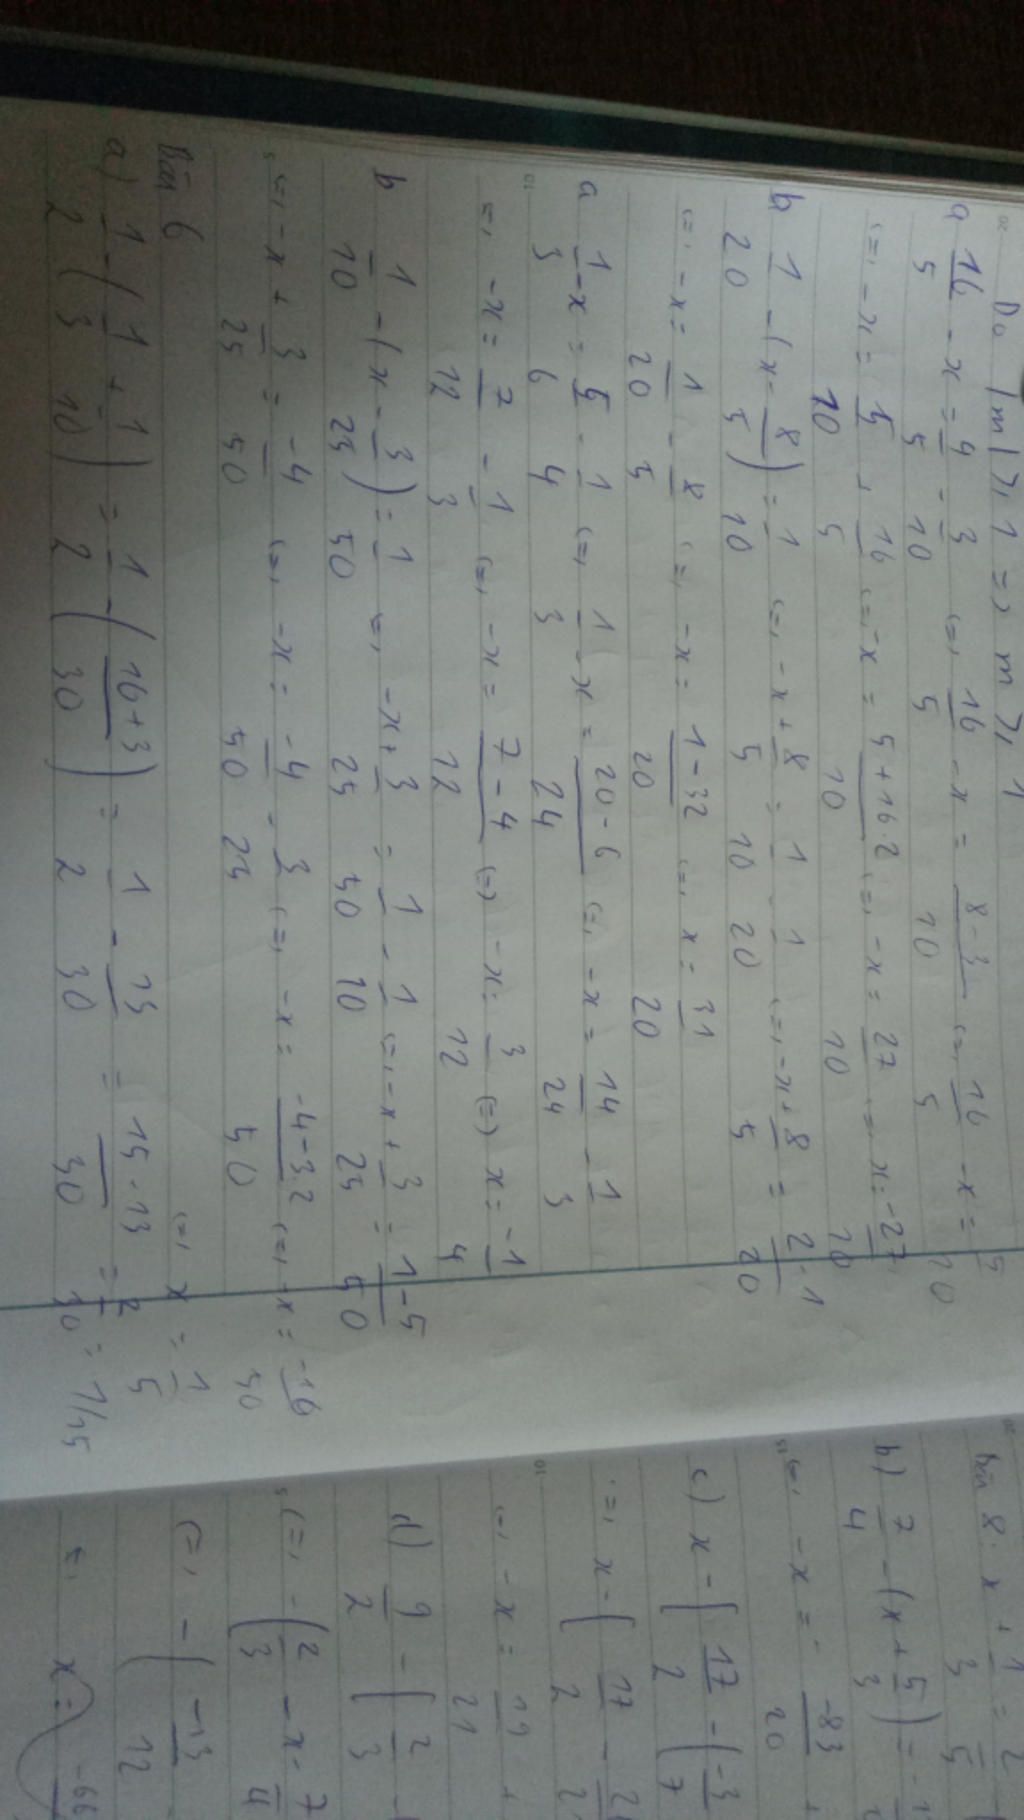 m ⩾ 1 => m ⩾ 1
a 16/5 - x = 4/5 - 3/10 <=> 16/5 - x = 8-3/10 <=> 16/5 - x = 5/10
<=> -x = 5/10 + 16/5 <=> -x = 5+16.2/10 <=> -x = 27/10 <=> x = -27/10
b 1/20 - (x - 8/5) = 1/10 <=> -x + 8/5 = 1/10 - 1/20 <=> -x + 8/5 = 2-1/20
<=> -x = 1/20 - 8/5 <=> -x = 1-32/20 <=> x = 31/20
a 1/3 - x = 5/6 - 1/4 <=> 1/3 - x = 20-6/24 <=> -x = 14/24 - 1/3
<=> -x = 7/12 - 1/3 <=> -x = 7-4/12 <=> -x = 3/12 <=> x = -1/4
b 1/10 - (x - 3/25) = 1/50 <=> -x + 3/25 = 1/50 - 1/10 <=> -x + 3/25 = 1-5/50
<=> -x + 3/25 = -4/50 <=> -x = -4/50 - 3/25 <=> -x = -4-3.2/50 <=> -x = -10/50
<=> x = 1/5
Bài 6
a) 1/2 - (1/3 + 1/10) = 1/2 - (10+3/30) = 1/2 - 13/30 = 15-13/30 = 2/30 = 1/15
Bài 8: x + 1/3 = 2/5
b) 7/4 - (x + 5/3) =
<=> -x = -83/20 +
c) x - [17/2 - (-3/7
<=> x - [17/2 -
<=> -x = 19/21 +
d) 9/2 - [2/3
<=> -(2/3 - x = 7/4
<=> - ( -13/12
x = -66